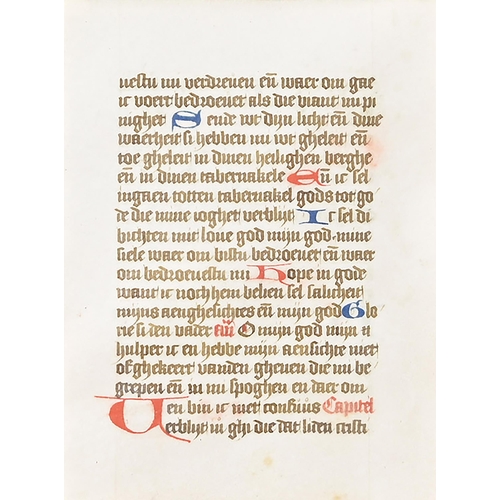 uestu mi verdreuen eñ waer om gae
ic voert bedroeuet als die viant mi pi
nighet Sende wt dijn licht eñ dine
waerheit si hebben mi wt gheleit eñ
toe gheleit in dinen heilighen berghe
eñ in dinen tabernakele Eñ ic sel
ingaen totten tabernakel gods tot go
de die mine ioghet verblijt Ic sel di
biechten mit loue god mijn god mine
siele waer om bistu bedroeuet eñ waer
om bedroeuestu mi Hope in gode
want ic noch hem belien sel salicheit
mijns aenghesichtes eñ mijn god Glo
rie si den vader O mijn god mijn
hulper ic en hebbe mijn aensichte niet
of ghekeert vanden ghenen die mi be
grepen eñ in mi spoghen eñ daer om
en bin ic niet confuus Capitel
Verblijt in ghi die dat liden cristi